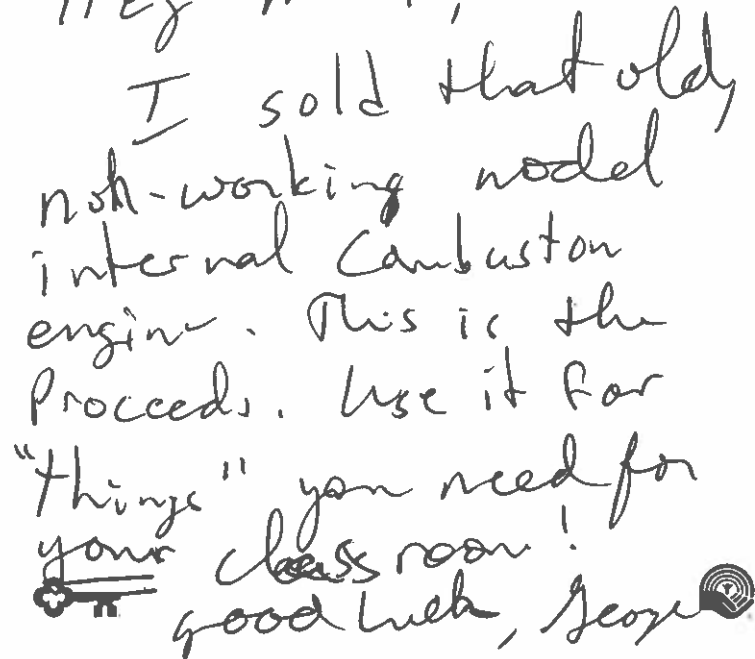 Hey
I sold that old,
non-working model
internal Combuston
engine. This is the
Proceeds. Use it for
"things" you need for
your classroom!
good luck, George